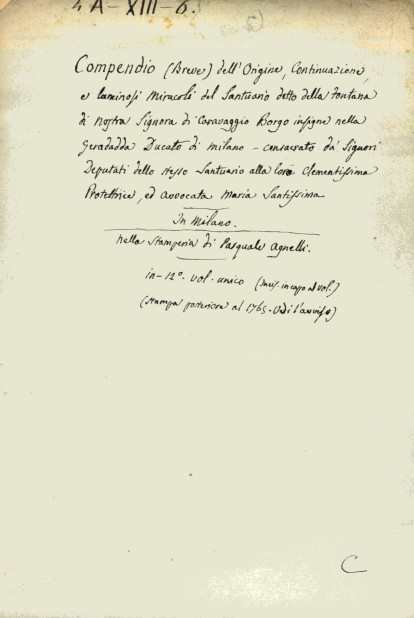 4A-XIII-6.
Compendio (Breve) dell'Origine, Continuazione,
e luminosi Miracoli del Santuario detto della Fontana
di Nostra Signora di Caravaggio Borgo insigne nella
Geradadda Ducato di Milano - consacrato da' Signori
Deputati dello stesso Santuario alla loro Clementissima
Protettrice, ed Avvocata Maria Santissima
In Milano.
nella Stamperia di Pasquale Agnelli.
in-12º. vol. unico (Incis. in capo al vol.)
(Stampa posteriore al 1765 - Vedi l'avviso)
C